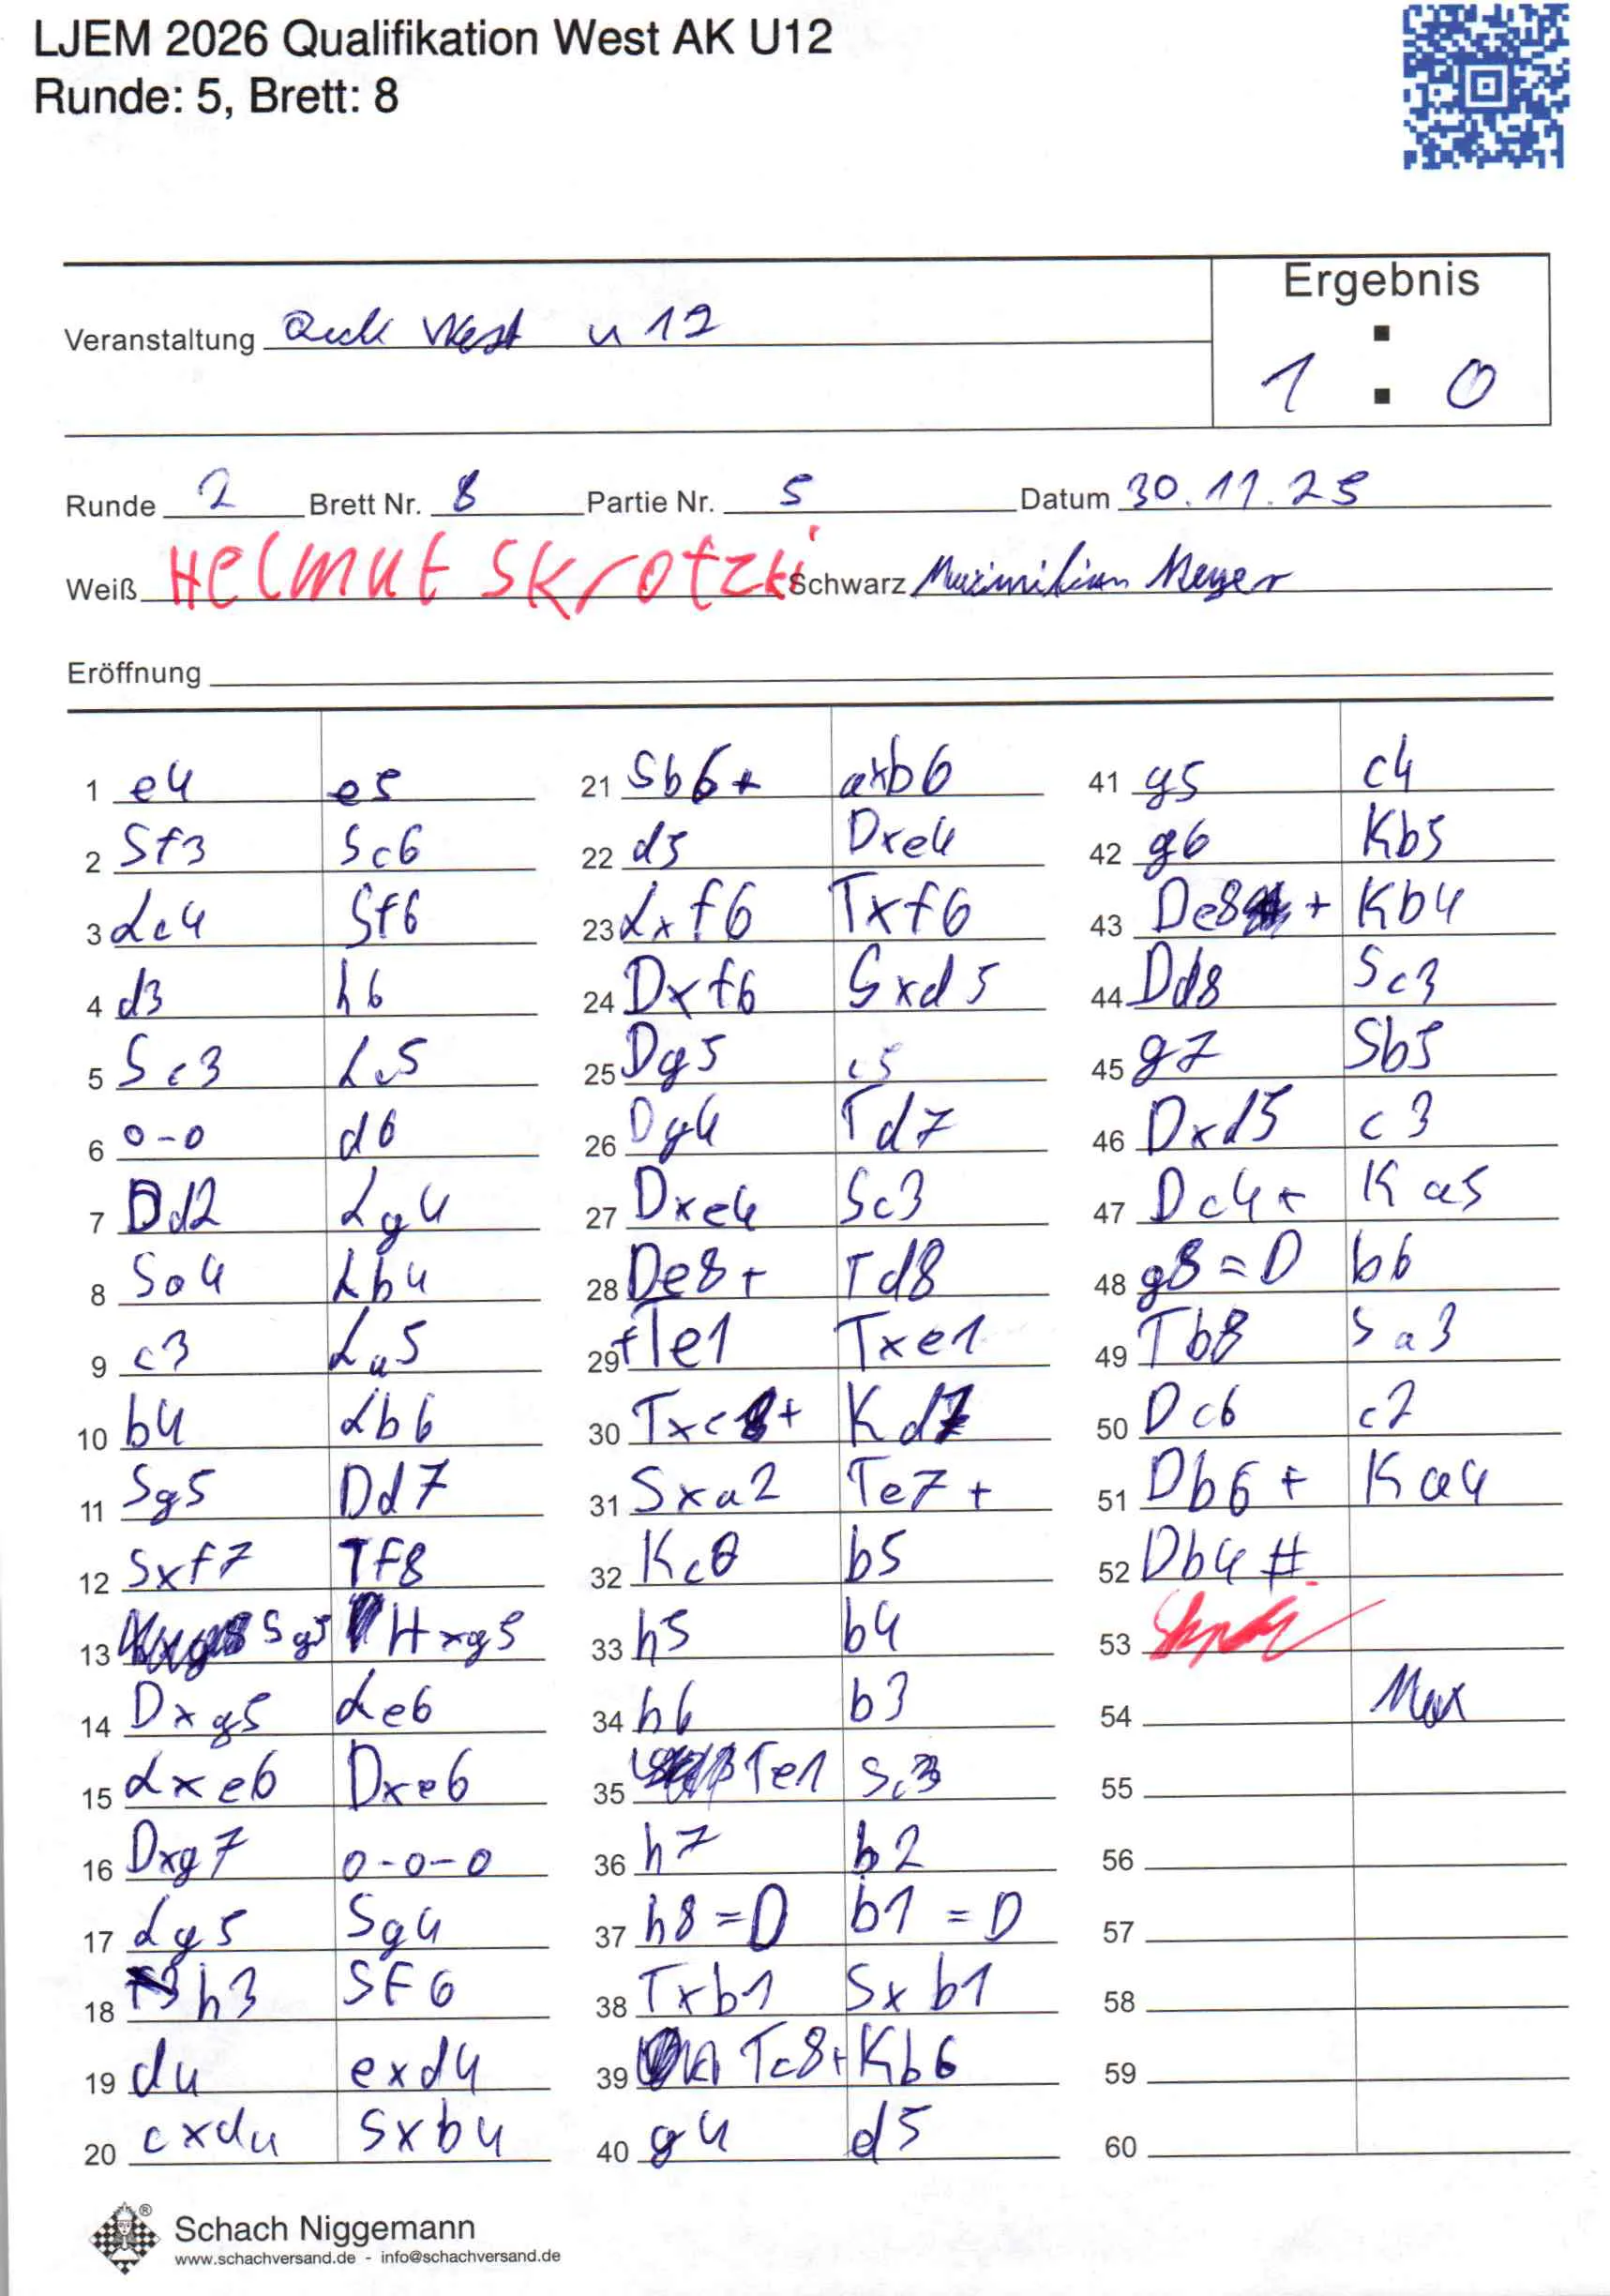 LJEM 2026 Qualifikation West AK U12
Runde: 5, Brett: 8
Ergebnis
Veranstaltung West u 12
1 : 0
Runde 2 Brett Nr. 8 Partie Nr. 5 Datum 30.11.25
Weiß Helmut Skrotzki Schwarz Maximilian Meyer
Eröffnung
1 e4 e5
2 Sf3 Sc6
3 Lc4 Sf6
4 d3 h6
5 Sc3 Lc5
6 0-0 d6
7 Dd2 Lg4
8 Sa4 Lb4
9 c3 La5
10 b4 Lb6
11 Sg5 Dd7
12 Sxf7 Tf8
13 Sg5 Hxg5
14 Dxg5 Le6
15 Lxe6 Dxe6
16 Dxg7 0-0-0
17 Lg5 Sg4
18 h3 SF6
19 d4 exd4
20 cxd4 Sxb4
21 Sb6+ axb6
22 d5 Dxe4
23 Lxf6 Txf6
24 Dxf6 Sxd5
25 Dg5 c5
26 Dg4 Td7
27 Dxe4 Sc3
28 De8+ Td8
29 +Te1 Txe1
30 Txc8+ Kd7
31 Sxa2 Te7+
32 Kc8 b5
33 h5 b4
34 h6 b3
35 Te1 Sc3
36 h7 b2
37 h8=D b1=D
38 Txb1 Sxb1
39 Tc8+ Kb6
40 g4 d5
41 g5 c4
42 g6 Kb5
43 De8+ Kb4
44 Dd8 Sc3
45 g7 Sb5
46 Dxd5 c3
47 Dc4+ Ka5
48 g8=D b6
49 Tb8 Sa3
50 Dc6 c2
51 Db6+ Ka4
52 Db4#
53
54 Max
55
56
57
58
59
60
Schach Niggemann
www.schachversand.de - info@schachversand.de